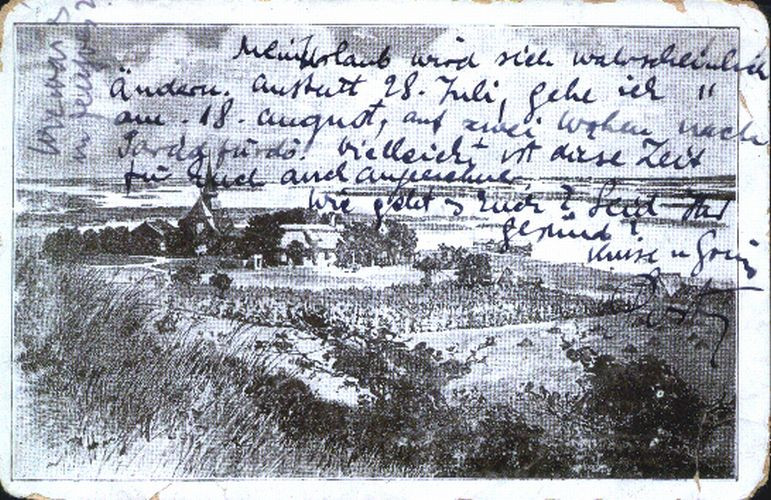 Mein Urlaub wird sich wahrscheinlich
Ändern. anstatt 28. Juli, gehe ich "
am. 18. august, auf zwei Wochen nach
Parádfürdő. Vielleicht ist diese Zeit
für Euch auch angenehme.
Wie geht s Euch? Seid Ihr
gesund?
Küsse u